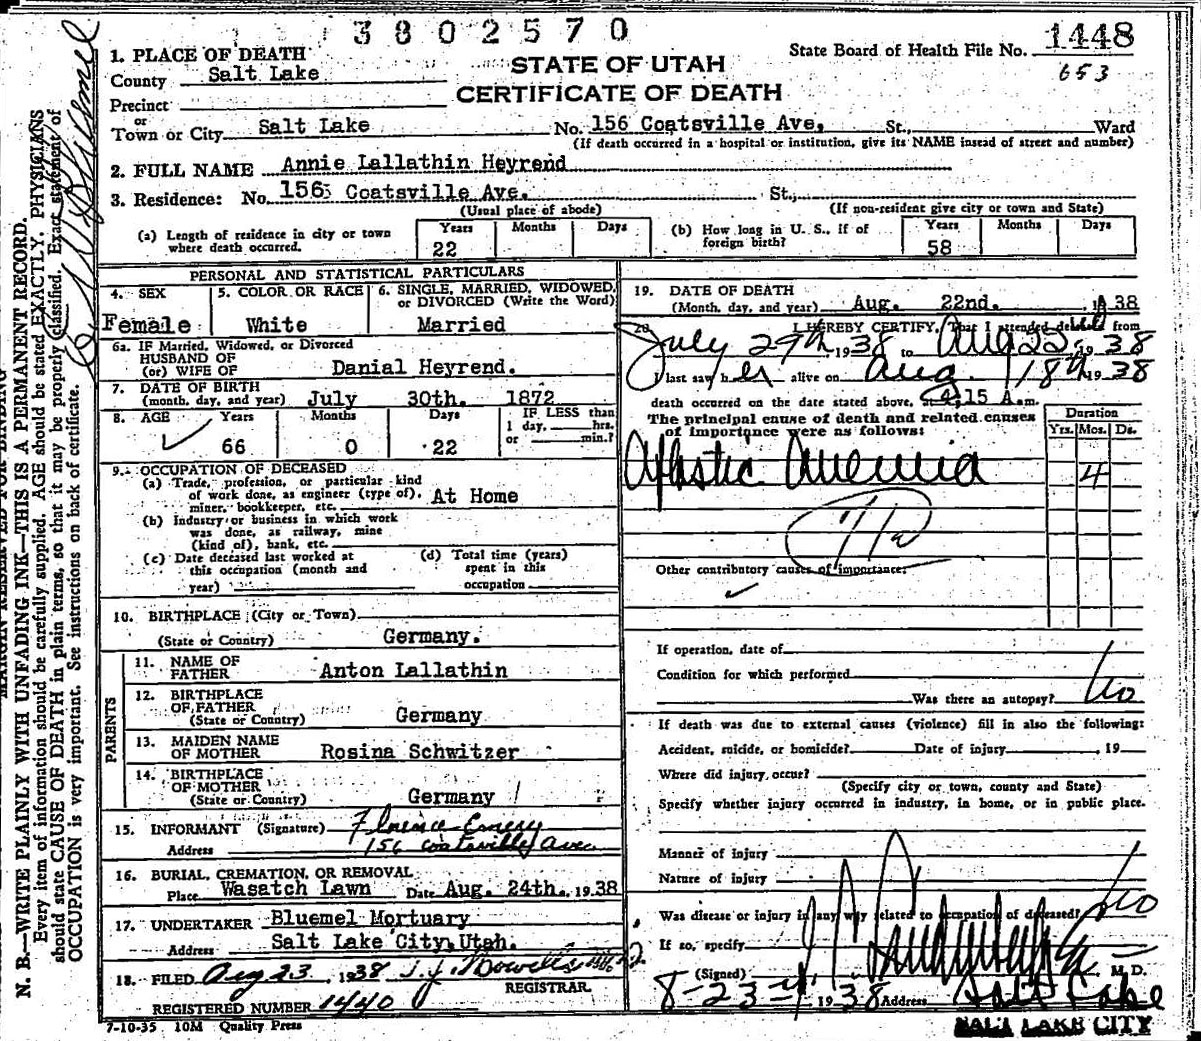 3802570
1. PLACE OF DEATH
County Salt Lake
Precinct
or
Town or City Salt Lake
STATE OF UTAH
CERTIFICATE OF DEATH
State Board of Health File No. 1448
653
No. 156 Coatsville Ave, St., Ward
(If death occurred in a hospital or institution, give its NAME insead of street and number)
2. FULL NAME Annie Lallathin Heyrend
3. Residence: No. 156 Coatsville Ave. St.,
(Usual place of abode) (If non-resident give city or town and State)
(a) Length of residence in city or town where death occurred. Years 22 Months Days
(b) How long in U. S., if of foreign birth? Years 58 Months Days
PERSONAL AND STATISTICAL PARTICULARS
4. SEX Female
5. COLOR OR RACE White
6. SINGLE, MARRIED, WIDOWED, or DIVORCED (Write the Word) Married
6a. IF Married, Widowed, or Divorced
HUSBAND OF
(or) WIFE OF Danial Heyrend.
7. DATE OF BIRTH
(month, day, and year) July 30th. 1872
8. AGE Years 66 Months 0 Days 22 IF LESS than 1 day, hrs. or min.?
9. OCCUPATION OF DECEASED
(a) Trade, profession, or particular kind
of work done, as engineer (type of), At Home
miner, bookkeeper, etc.
(b) Industry or business in which work
was done, as railway, mine
(kind of), bank, etc.
(c) Date deceased last worked at
this occupation (month and
year)
(d) Total time (years)
spent in this
occupation
10. BIRTHPLACE (City or Town)
(State or Country) Germany.
PARENTS
11. NAME OF FATHER Anton Lallathin
12. BIRTHPLACE OF FATHER
(State or Country) Germany
13. MAIDEN NAME OF MOTHER Rosina Schwitzer
14. BIRTHPLACE OF MOTHER
(State or Country) Germany
15. INFORMANT (Signature) Florence Emery
Address 156 Coatsville Ave
16. BURIAL, CREMATION, OR REMOVAL
Place Wasatch Lawn Date Aug. 24th. 1938
17. UNDERTAKER Bluemel Mortuary
Address Salt Lake City, Utah.
18. FILED Aug 23, 1938
REGISTRAR
REGISTERED NUMBER 1440
7-10-35 10M Quality Press
19. DATE OF DEATH
(Month, day, and year) Aug. 22nd. 1938
20. I HEREBY CERTIFY, That I attended deceased from
July 29th 1938 to Aug 22, 1938
I last saw her alive on Aug 18th 1938
death occurred on the date stated above, at 4:15 A.m.
The principal cause of death and related causes
of importance were as follows:
Duration
Yrs. Mos. Ds.
Aplastic Anemia 4
Other contributory causes of importance:
If operation, date of
Condition for which performed
Was there an autopsy? No
If death was due to external causes (violence) fill in also the following:
Accident, suicide, or homicide? Date of injury , 19
Where did injury occur?
(Specify city or town, county and State)
Specify whether injury occurred in industry, in home, or in public place.
Manner of injury
Nature of injury
Was disease or injury in any way related to occupation of deceased? No
If so, specify
(Signed) M. D.
8-23- 1938 Address Salt Lake
SALT LAKE CITY
MARGIN RESERVED FOR BINDING
N. B.—WRITE PLAINLY WITH UNFADING INK—THIS IS A PERMANENT RECORD.
Every item of information should be carefully supplied. AGE should be stated EXACTLY. PHYSICIANS
should state CAUSE OF DEATH in plain terms, so that it may be properly classified. Exact statement of
OCCUPATION is very important. See instructions on back of certificate.